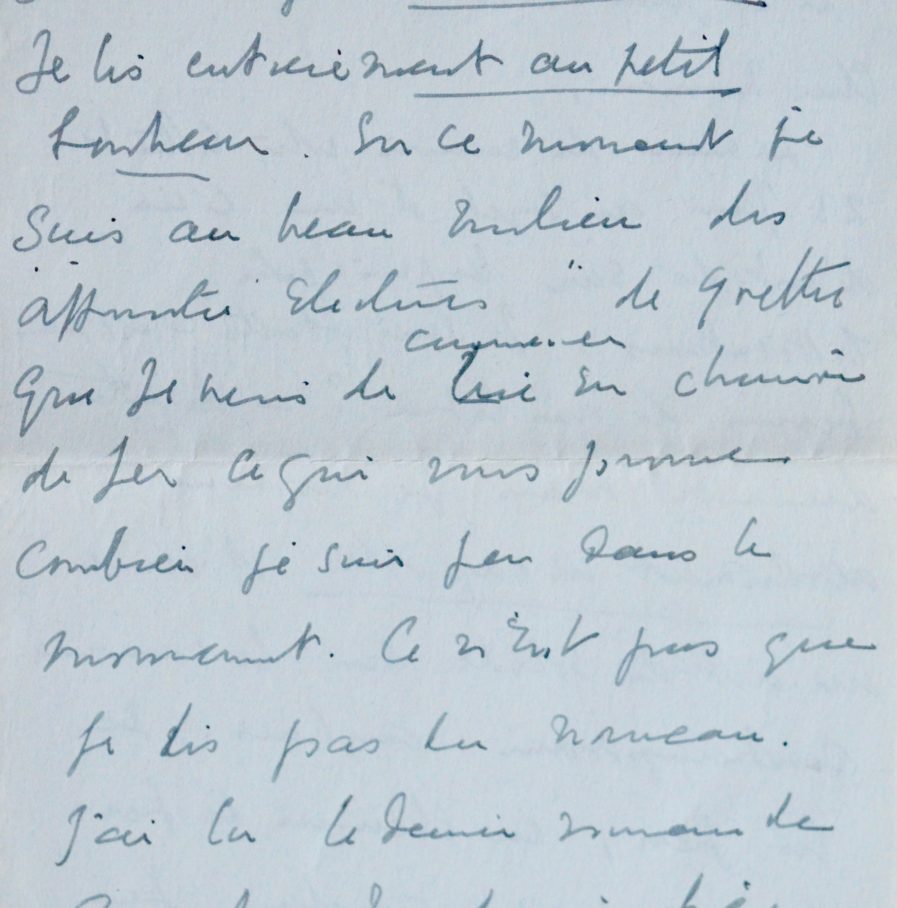 Je lis entièrement au petit
bonheur. En ce moment je
suis au beau milieu des
"affinités Electives" de Goethe
commencer
que je viens de lire en chemin
de fer ce qui vous prouve
combien je suis peu dans le
moment. Ce n'est pas que
je lis pas du nouveau.
J'ai lu le dernier roman de